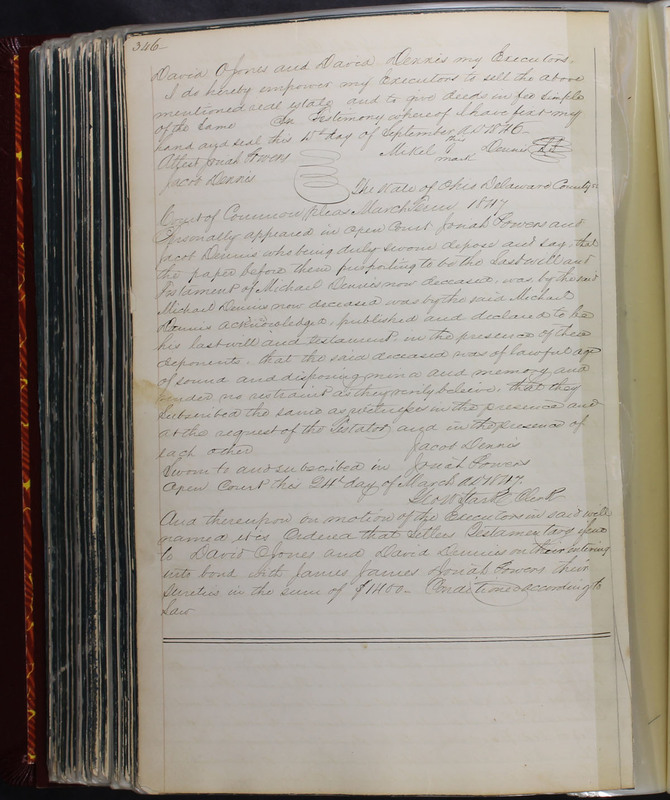 346
David O Jones and David Dennis my Executors.
I do hereby empower my Executors to sell the above
mentioned real estate and to give deeds in fee simple
of the same In Testimony whereof I have fixt my
hand and seal this day of September AD 1846
Attest Josiah Powers Mikel his mark Dennis
Jacob Dennis
The State of Ohio Delaware County ss
Court of Common Pleas March Term 1847
Personally appeared in open Court Josiah Powers and
Jacob Dennis who being duly sworn depose and say, that
the paper before them purporting to be the Last will and
Testament of Michael Dennis now deceased, was by the said
Michael Dennis now deceased was by the said Michael
Dennis acknowledged, published and declared to be
his last will and testament, in the presence of these
deponents, that the said deceased was of lawful age
of sound and disposing mind and memory, and
under no restraint as they verily believe, that they
subscribed the same as witnesses in the presence and
at the request of the Testator, and in the presence of
each other Jacob Dennis
Sworn to and subscribed in Josiah Powers
Open Court this 24th day of March AD 1847.
Tho W Clerk
And thereupon on motion of the Executors in said will
named it is Ordered that Letters Testamentary issue
to David O Jones and David Dennis on their entering
into bond with James James Josiah Powers their
sureties in the sum of $1400- Conditioned according to
Law